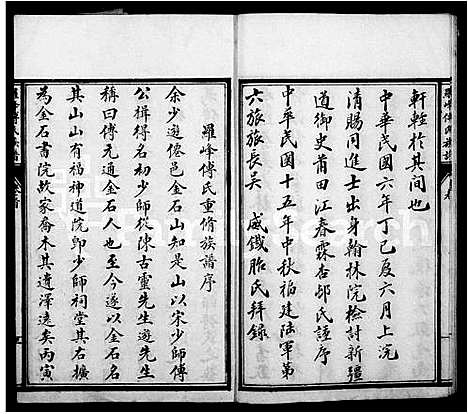 羅峰傅氏族譜
軒輊於其間也
中華民國六年丁巳夏六月上浣
清賜同進士出身翰林院檢討新疆
道御史莆田江春霖杏邨氏謹序
中華民國十五年中秋福建陸軍第
六旅旅長吳 威鐵胎氏拜錄
羅峰傅氏重脩族譜序
余少遊僊邑金石山知是山以宋少師傅
公楫得名初少師從陳古靈先生遊先生
稱曰傅元通金石人也至今遂以金石名
其山山有福神道院即少師祠堂其右擴
為金石書院故家喬木其遺澤遠矣丙寅